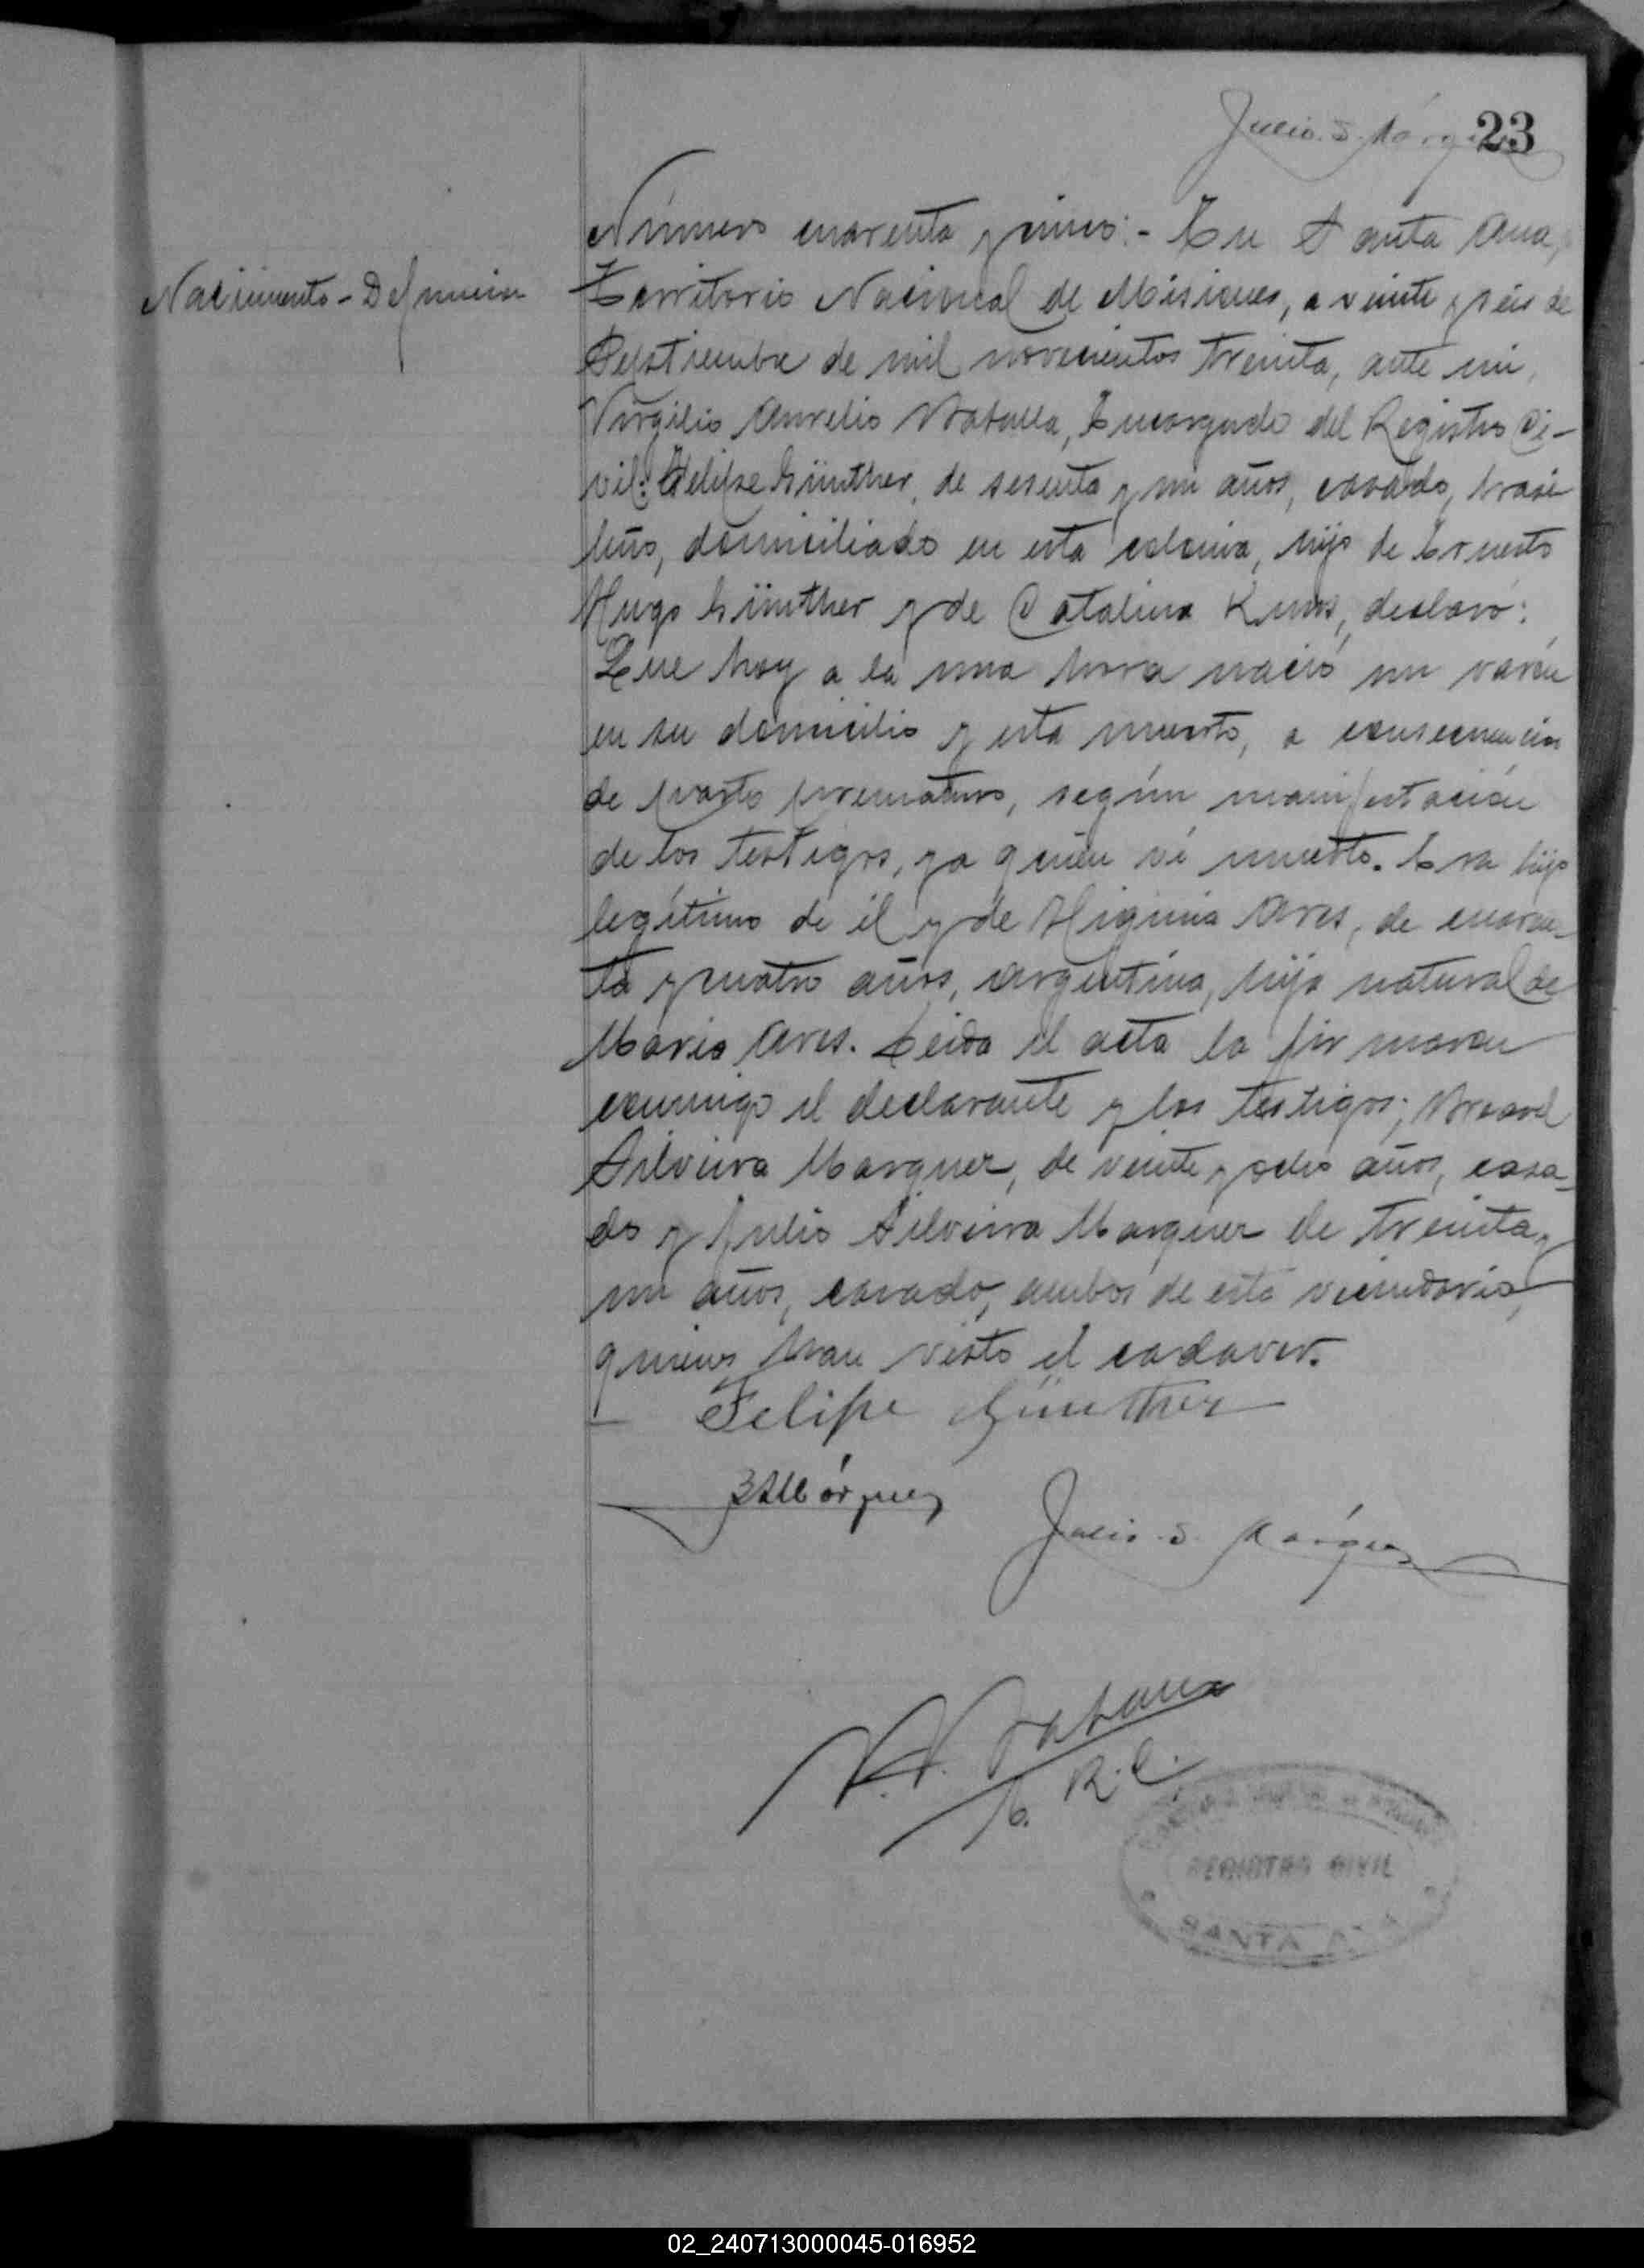 Julio. S. Márquez
23
Número cuarenta y cinco:- En Santa Ana,
Nacimiento - Defunción
Territorio Nacional de Misiones, a veinte y seis de
Septiembre de mil novecientos treinta, ante mi,
Virgilio Aurelio Encargado del Registro Ci-
vil: Felipe Günther, de sesenta y un años, casado, brasi
leño, domiciliado en esta colonia, hijo de Ernesto
Hugo Günther y de Catalina declaró:
Que hoy a la una hora nació un varón
en su domicilio y esta muerto, a consecuencia
de parto prematuro, según manifestación
de los testigos, y a quien ví muerto. Era hijo
legítimo de él y de Higinia Ares, de cuaren-
ta y cuatro años, argentina, hija natural de
Maria Ares. Leida el acta la firmaron
conmigo el declarante y los testigos;
Silveira Marquez, de veinte y ocho años, casa-
do y Julio Silveira Marquez de treinta y
un años, casado, ambos de este vecindario,
quienes han visto el cadaver.
Felipe Günther
BSMárquez
Julio. S. Márquez
V. A.
E. R. C.
REGISTRO CIVIL
SANTA ANA
02_240713000045-016952